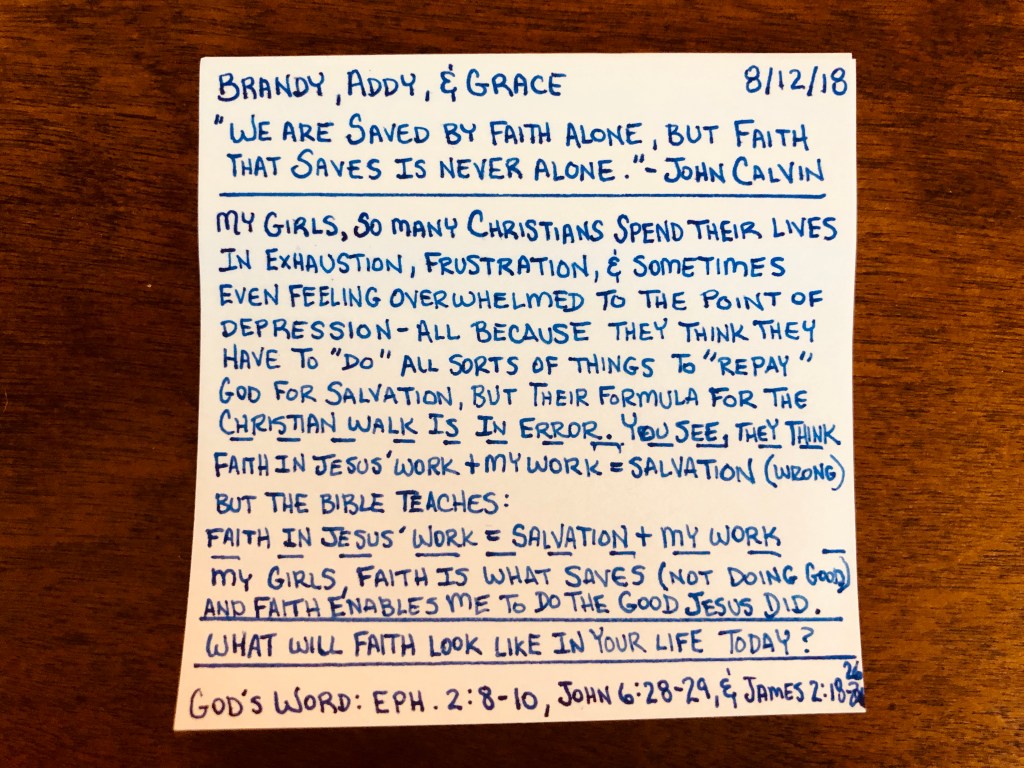 BRANDY, ADDY, & GRACE 8/12/18
"WE ARE SAVED BY FAITH ALONE, BUT FAITH
THAT SAVES IS NEVER ALONE."-JOHN CALVIN
MY GIRLS, SO MANY CHRISTIANS SPEND THEIR LIVES
IN EXHAUSTION, FRUSTRATION, & SOMETIMES
EVEN FEELING OVERWHELMED TO THE POINT OF
DEPRESSION-ALL BECAUSE THEY THINK THEY
HAVE TO "DO" ALL SORTS OF THINGS TO "REPAY"
GOD FOR SALVATION, BUT THEIR FORMULA FOR THE
CHRISTIAN WALK IS IN ERROR. YOU SEE, THEY THINK
FAITH IN JESUS' WORK + MY WORK = SALVATION (WRONG)
BUT THE BIBLE TEACHES:
FAITH IN JESUS' WORK = SALVATION + MY WORK
MY GIRLS, FAITH IS WHAT SAVES (NOT DOING GOOD)
AND FAITH ENABLES ME TO DO THE GOOD JESUS DID.
WHAT WILL FAITH LOOK LIKE IN YOUR LIFE TODAY?
GOD'S WORD: EPH. 2:8-10, JOHN 6:28-29, & JAMES 2:18-26